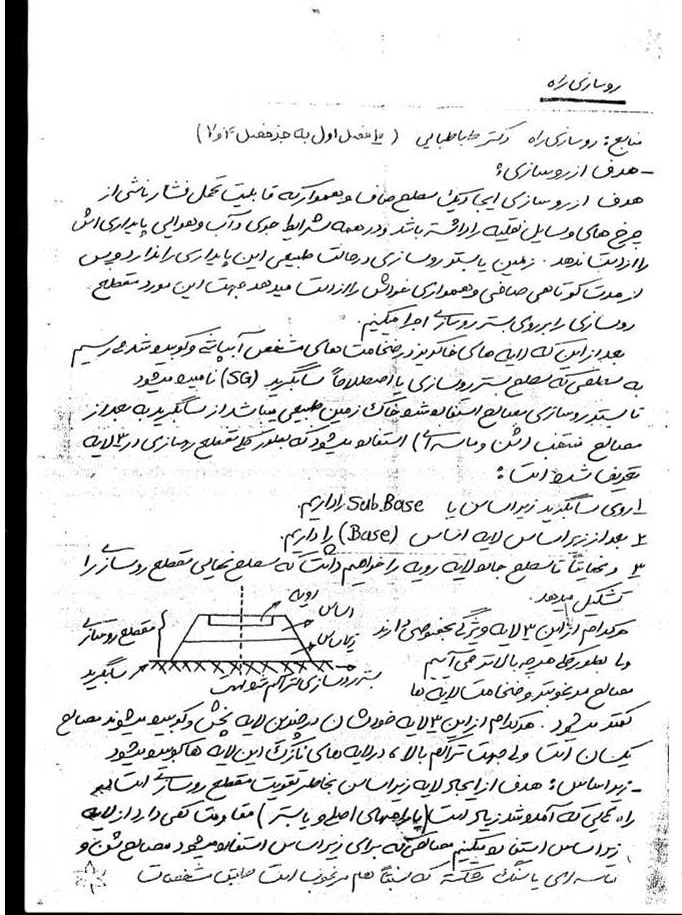 روسازی راه
منابع: روسازی راه دکتر طباطبایی (۱۰ فصل اول به جز فصل ۳ و ۷)
- هدف از روسازی:
هدف از روسازی ایجاد یک سطح صاف و هموار که قابلیت تحمل فشار ناشی از
چرخ های وسایل نقلیه را داشته باشد و در همه شرایط جوی و آب و هوایی پایداری اش
را از دست ندهد. زمین یا بستر روسازی در حالت طبیعی این پایداری را ندارد و پس
از مدت کوتاهی صافی و همواری خودش را از دست میدهد جهت این مورد مقطع
روسازی را بر روی بستر روسازی اجرا میکنیم.
بعد از این که لایه های خاکریز در ضخامت های مشخص آبپاشی و کوبیده شد می رسیم
به سطحی که سطح بستر روسازی یا اصطلاحاً سابگرید (SG) نامیده میشود
تا بستر روسازی مصالح استفاده شده خاک زمین طبیعی میباشد از سابگرید به بعد از
مصالح منتخب (شن و ماسه ای) استفاده میشود که بطور کلی مقطع روسازی در ۳ لایه
تعریف شده است:
۱ روی سابگرید زیر اساس یا Sub.Base را داریم.
۲ بعد از زیر اساس لایه اساس (Base) را داریم.
۳ و نهایتاً تا سطح جاده لایه رویه را خواهیم داشت که سطح نهایی مقطع روسازی را
تشکیل میدهد.
رویه
اساس
زیر اساس
مقطع روسازی
سابگرید
بستر روسازی متراکم شده
هر کدام از این ۳ لایه ویژگی بخصوصی دارند
ولی بطور کلی هر چه بالاتر می آئیم
مصالح مرغوبتر و ضخامت لایه ها
کمتر میشود. هر کدام از این ۳ لایه خودشان در چندین لایه پخش و کوبیده میشوند مصالح
یکسان است ولی جهت تراکم بالا، در لایه های نازک این لایه ها کوبیده میشود
- زیر اساس: هدف از ایجاد لایه زیر اساس بخاطر تقویت مقطع روسازی است
راه هایی که آمد و شد زیاد است (یا راههای اصلی و یا بستر) مقاومت کمی دارد از لایه
زیر اساس استفاده میکنیم مصالحی که برای زیر اساس استفاده میشود مصالح شن و
ماسه ای یا سنگ شکسته که نسبتاً هم مرغوب است طبق مشخصات